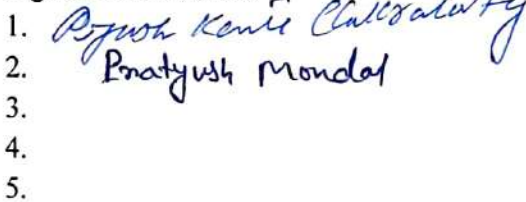 1. Piyush Kanti Chakraborty
2. Pratyush Mondal
3.
4.
5.